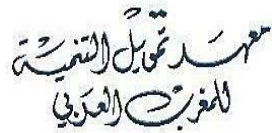 معهد تمويل التنمية
للمغرب العربي